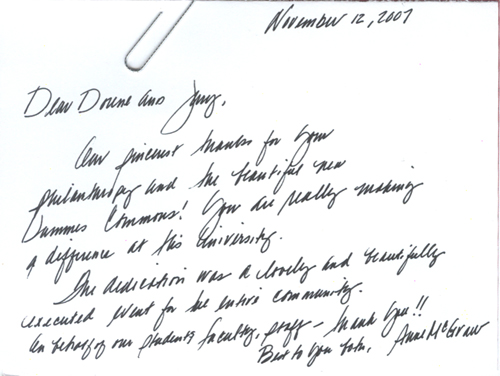 November 12, 2007
Dear Dorene and Jerry,
Our sincerest thanks for your
philanthropy and the beautiful new
Commons! You are really making
a difference at this University.
The dedication was a lovely and beautifully
executed event for the entire community.
On behalf of our students, faculty, staff – thank you!!
Best to you both, Anne McGraw